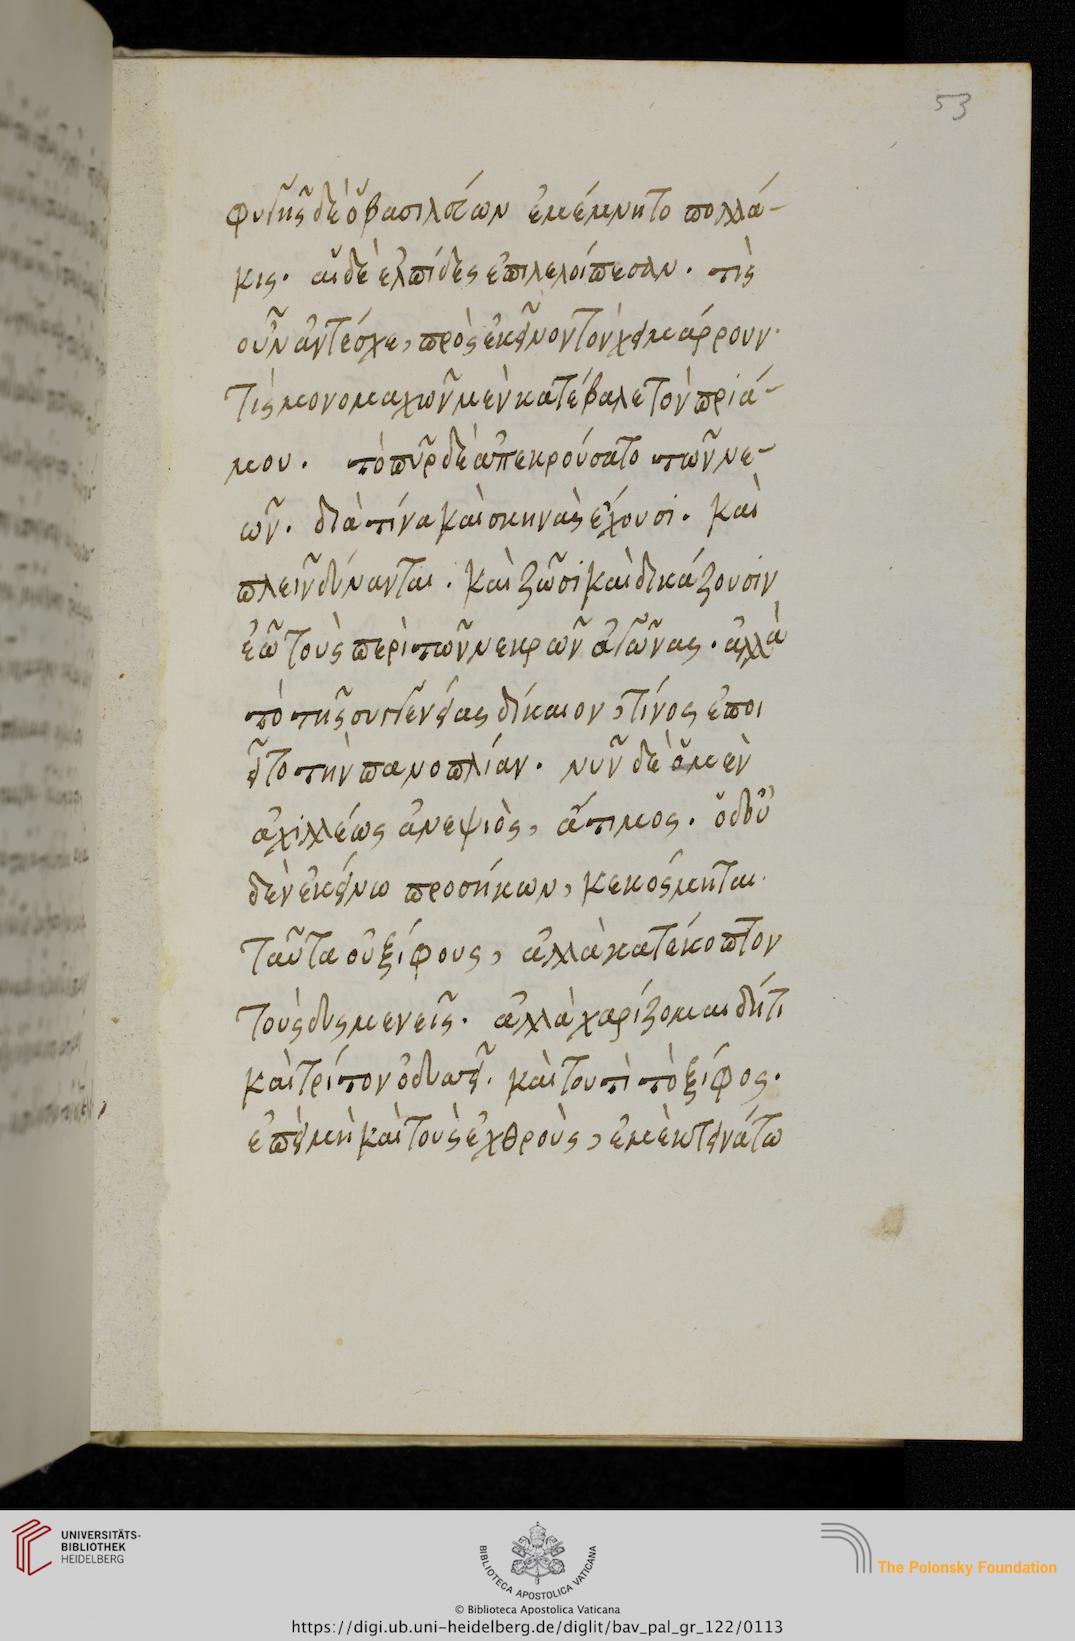 53
φυγῆς δὲ ὁ βασιλεύων ἐμέμνητο πολλά-
κις. αἱ δὲ ἐλπίδες ἐπιλελοίπεσαν. τίς
οὖν ἀντέσχε, πρὸς ἐκεῖνον τὸν χειμάρρουν.
τίς μονομαχῶν μὲν κατέβαλε τὸν πριά-
μου. τὸ πῦρ δὲ ἀπεκρούσατο τῶν νε-
ῶν. διὰ τίνα καὶ σκηνὰς ἔχουσι. καὶ
πλεῖν δύνανται. καὶ ζῶσι καὶ δικάζουσιν
ἐῶ τοὺς περὶ τῶν νεκρῶν ἀγῶνας. ἀλλὰ
τὸ τῆς συγγενείας δίκαιον, τίνος ἐποι
εῖτο τὴν πανοπλίαν. νῦν δὲ ὁ μὲν
ἀχιλλέως ἀνεψιὸς, ἄτιμος. ὁ δ' οὐ
δὲν ἐκείνω προσήκων, κεκόσμηται.
ταῦτα οὐ ξίφους, ἀλλὰ κατέκοπτον
τοὺς δυσμενεῖς. ἀλλὰ χαρίζομαι δή τι
καὶ τρίτον ὀδυσεῖ. καὶ τουτὶ τὸ ξίφος.
ἐπεὶ μὴ καὶ τοὺς ἐχθροὺς, ἐμὲ κτεινάτω
UNIVERSITÄTS-
BIBLIOTHEK
HEIDELBERG
BIBLIOTECA APOSTOLICA VATICANA
The Polonsky Foundation
© Biblioteca Apostolica Vaticana
https://digi.ub.uni-heidelberg.de/diglit/bav_pal_gr_122/0113